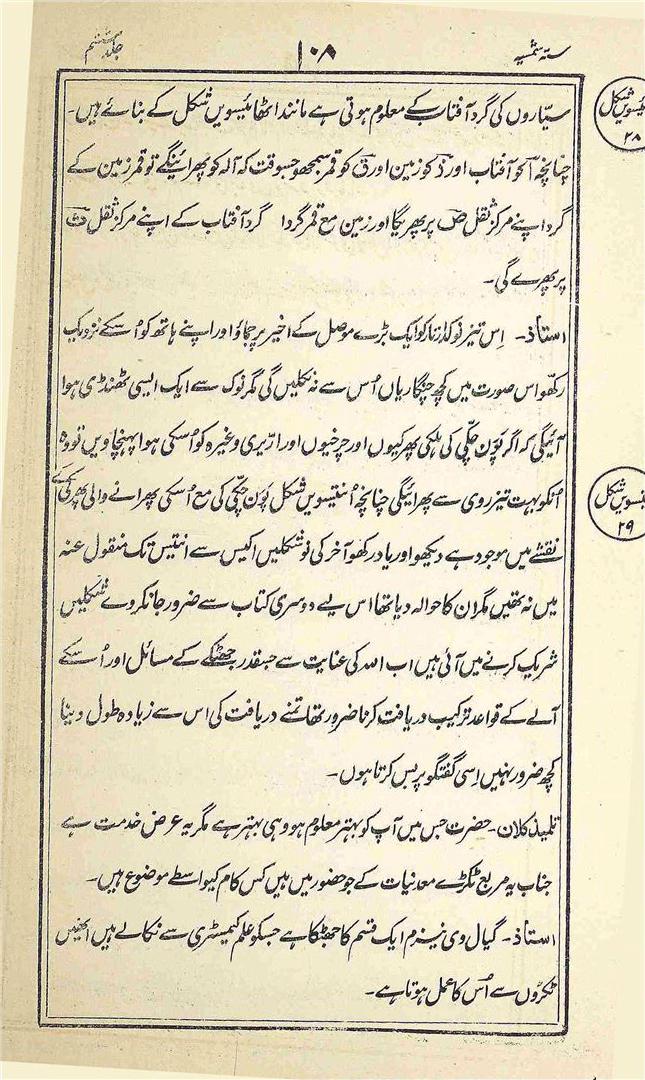 ستہ شمسیہ ۱۰۸ جلد ششم
سیّاروں کی گرد آفتاب کے معلوم ہوتی ہے مانند اٹھائیسویں شکل کے بنائے ہیں۔
شکل ۲۸
چنانچہ آ کو آفتاب اور ذ کو زمین اور ق کو قمر سمجھو جسوقت کہ آلہ کو پھرائینگے تو قمر زمین کے
گرد اپنے مرکز ثقل ص پر پھریگا اور زمین مع قمر گردا گرد آفتاب کے اپنے مرکز ثقل ث
پر پھرے گی۔
استاذ۔ اِس تیز نوکدار تار کو ایک بڑے موصل کے اخیر پر جماؤ اور اپنے ہاتھ کو اُسکے نزدیک
رکھو اس صورت میں کچھ چنگاریاں اُس سے نہ نکلیں گی مگر نوک سے ایک ایسی ٹھنڈی ہوا
آئیگی کہ اگر پَوَن چکّی کی ہلکی پھرکیوں اور چرخیوں اور ارّیری وغیرہ کو اُسکی ہوا پہنچاویں تو وہ
اُنکو بہت تیز روی سے پھرائیگی چنانچہ اُنتیسویں شکل پَوَن چکّی کی مع اُسکی پھرانے والی پھرکی کے
شکل ۲۹
نقشے میں موجود ہے دیکھو اور یاد رکھو آخر کی نو شکلیں اکیس سے انتیس تک منقول عنہ
میں نہ تھیں مگر ان کا حوالہ دیا تھا اس لیے دوسری کتاب سے ضرور جانکر وے شکلیں
شریک کرنے میں آئی ہیں اب اللہ کی عنایت سے جسقدر جھٹکے کے مسائل اور اُسکے
آلے کے قواعد ترکیب دریافت کرنا ضرور تھا تمنے دریافت کی اس سے زیادہ طول دینا
کچھ ضرور نہیں اِسی گفتگو پر بس کرتا ہوں۔
تلمیذ کلان۔ حضرت جس میں آپ کو بہتر معلوم ہو وہی بہتر ہے مگر یہ عرض خدمت ہے
جناب یہ مربع ٹکڑے معدنیات کے جو حضور میں ہیں کس کام کیواسطے موضوع ہیں۔
استاذ۔ گیال وی نیزم ایک قسم کا جھٹکا ہے جسکو علم کیمسٹری سے نکالے ہیں انھیں
ٹکڑوں سے اُس کا عمل ہوتا ہے۔